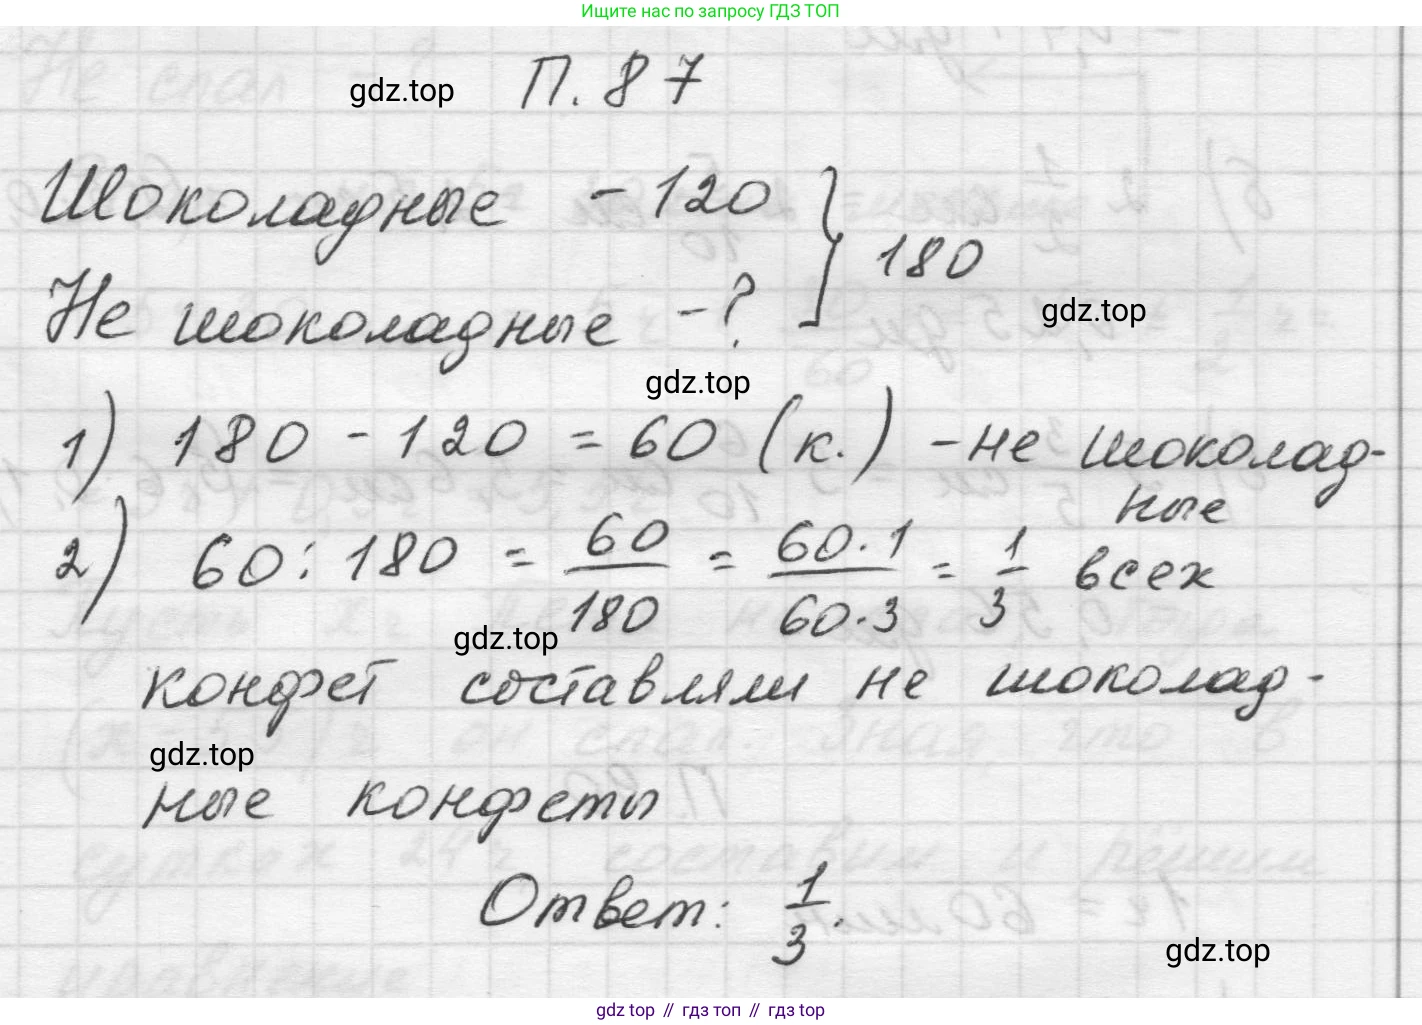 Ищите нас по запросу ГДЗ ТОП
gdz.top П. 87
Шоколадные - 120
} 180
Не шоколадные - ?
gdz.top
gdz.top
1) 180 - 120 = 60 (к.) - не шоколад-
ные
2) 60 : 180 = 60/180 = 60·1/60·3 = 1/3 всех
gdz.top
конфет составляли не шоколад-
gdz.top
ные конфеты
Ответ: 1/3.
gdz.top
gdz.top // гдз топ // gdz.top